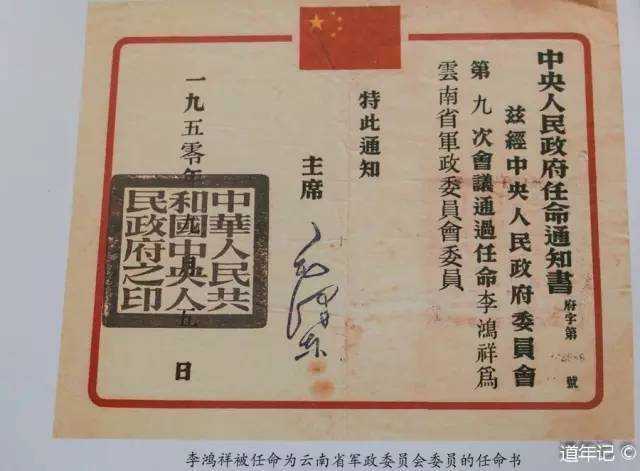 中央人民政府任命通知書
府字第 號
兹經中央人民政府委員會
第九次會議通過任命李鴻祥為
雲南省軍政委員會委員
特此通知
主席
毛澤東
一九五零年九月五日
中華人民共
和國中央人
民政府之印
李鸿祥被任命为云南省军政委员会委员的任命书
道年记 ©